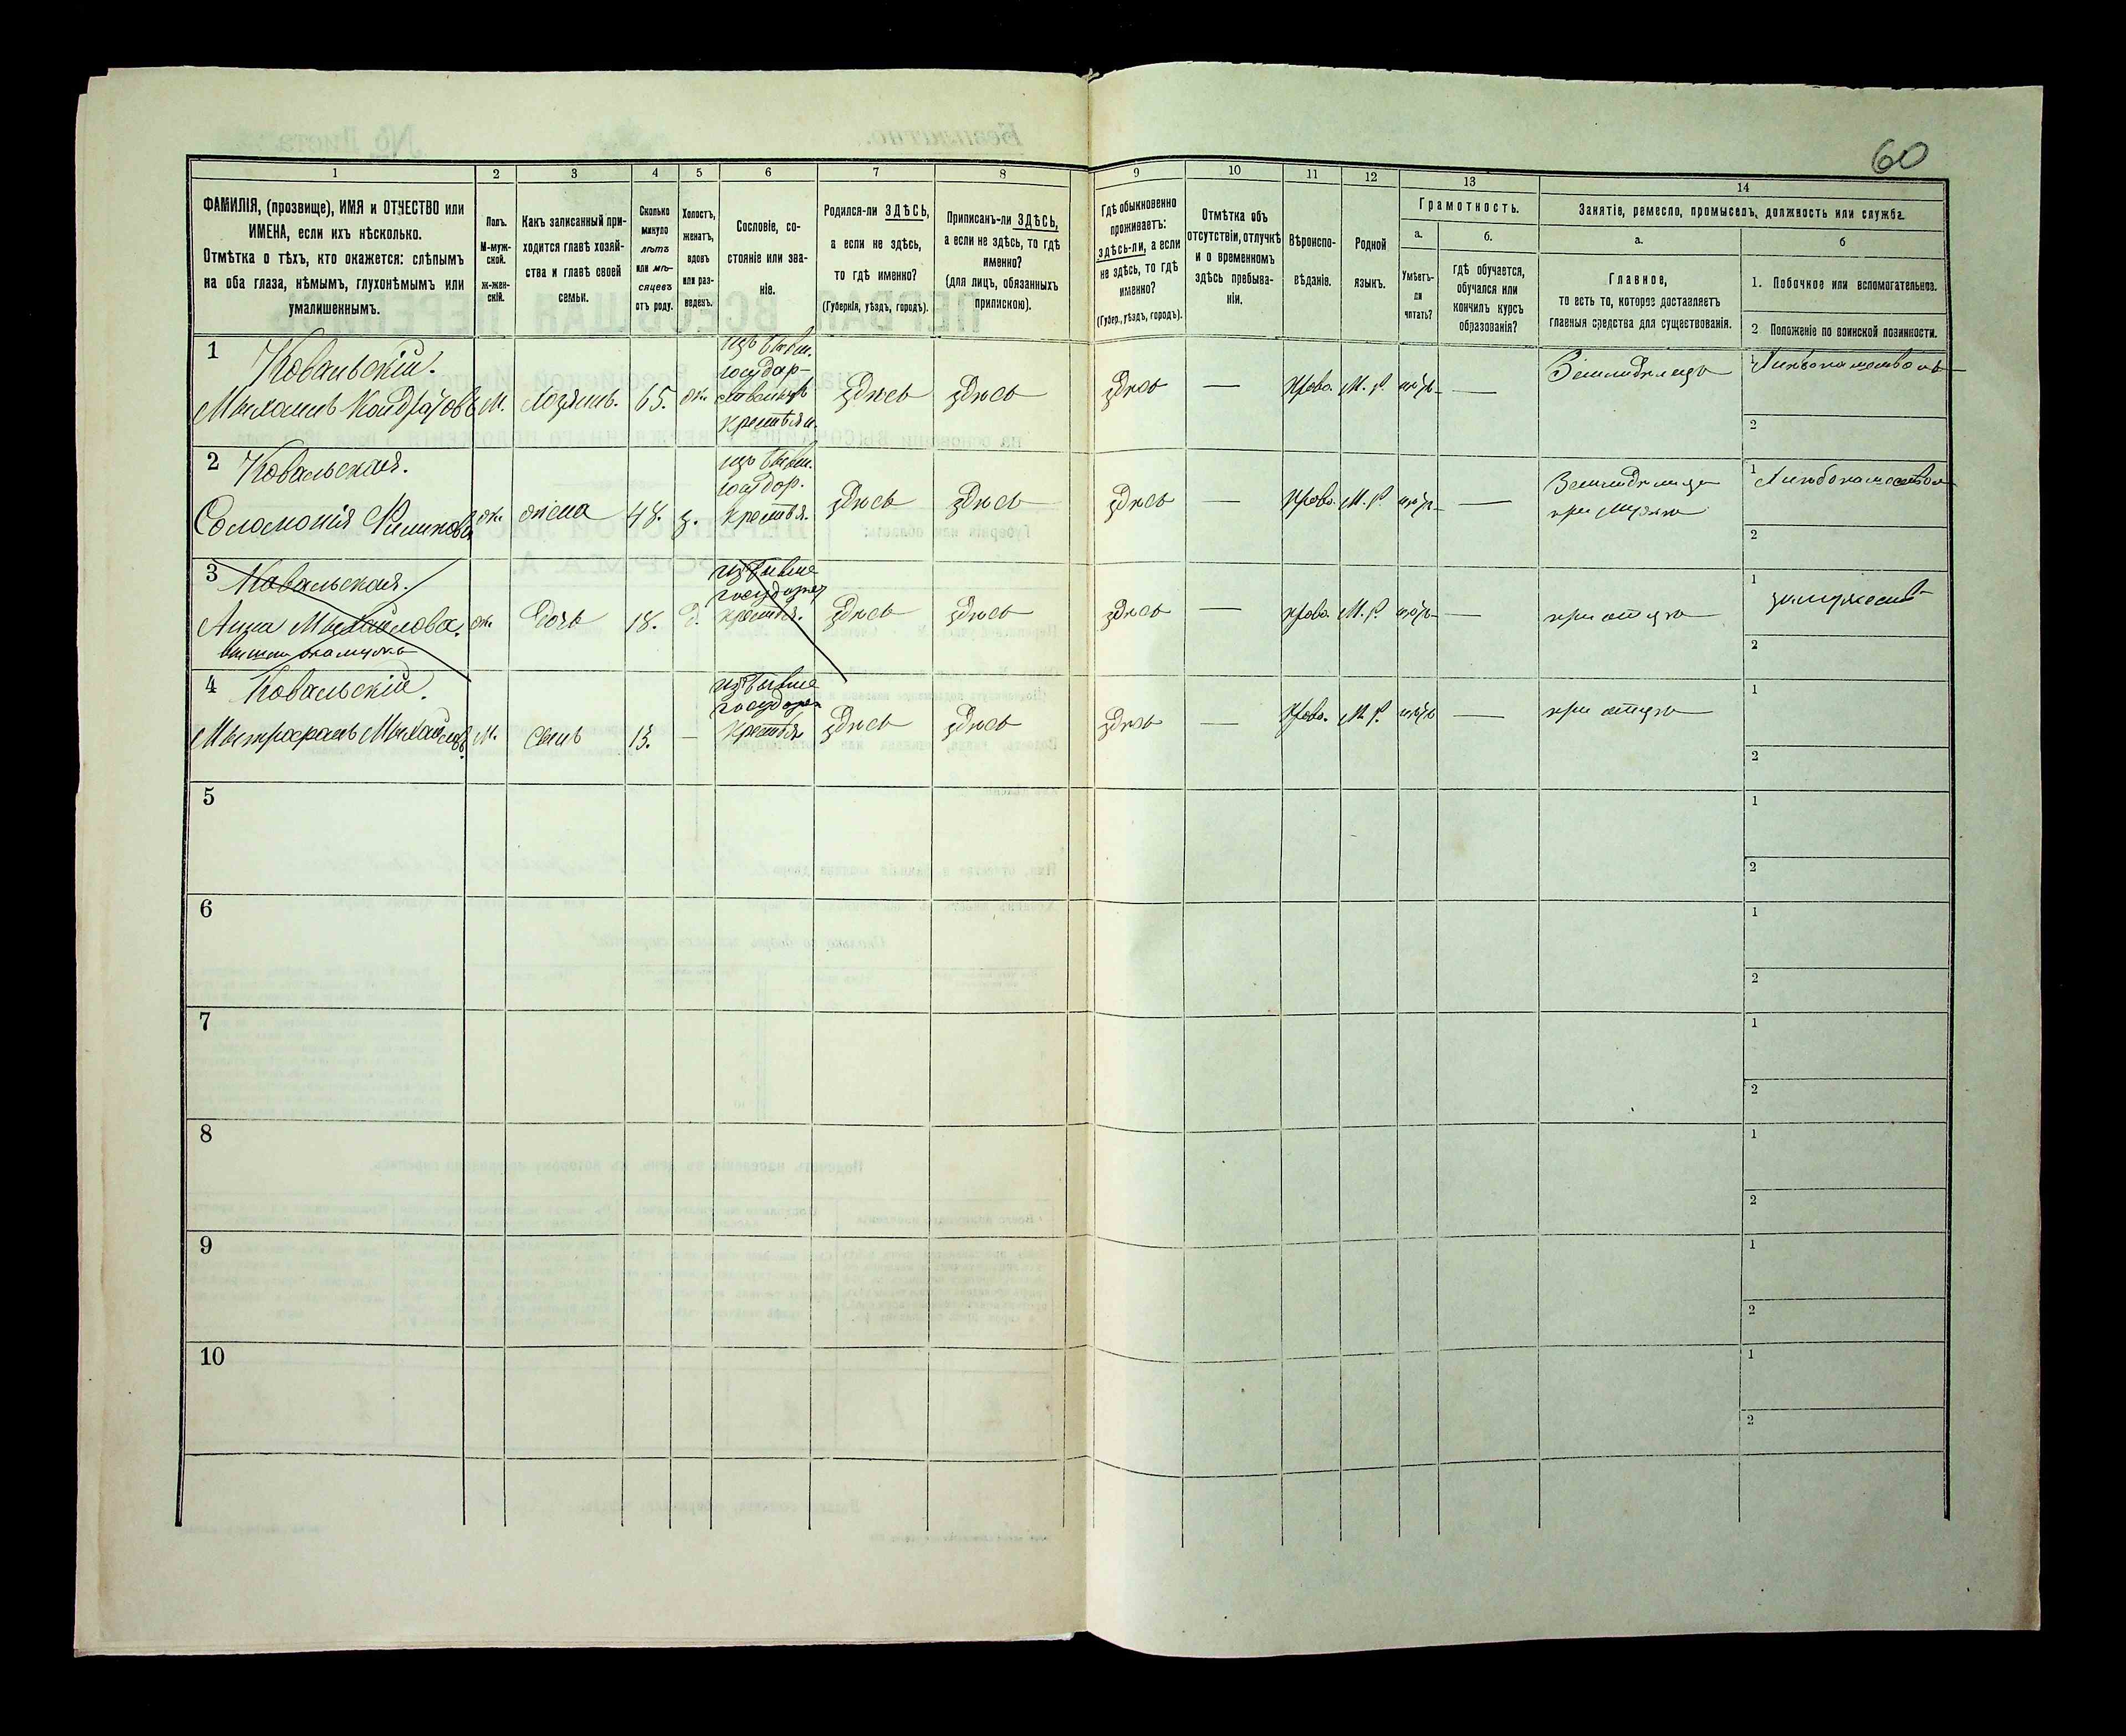 60
1
2
3
4
5
6
7
8
9
10
11
12
13
14
ФАМИЛІЯ, (прозвище), ИМЯ и ОТЧЕСТВО или
ИМЕНА, если ихъ нѣсколько.
Отмѣтка о тѣхъ, кто окажется: слѣпымъ
на оба глаза, нѣмымъ, глухонѣмымъ или
умалишеннымъ.
Полъ.
М-муж-
ской.
ж-жен-
скій.
Какъ записанный при-
ходится главѣ хозяй-
ства и главѣ своей
семьи.
Сколько
минуло
лѣтъ
или мѣ-
сяцевъ
отъ роду.
Холостъ,
женатъ,
вдовъ
или раз-
веденъ.
Сословіе, со-
стояніе или зва-
ніе.
Родился-ли ЗДѢСЬ,
а если не здѣсь,
то гдѣ именно?
(Губернія, уѣздъ, городъ).
Приписанъ-ли ЗДѢСЬ,
а если не здѣсь, то гдѣ
именно?
(для лицъ, обязанныхъ
припискою).
Гдѣ обыкновенно
проживаетъ:
здѣсь-ли, а если
не здѣсь, то гдѣ
именно?
(Губер., уѣздъ, городъ).
Отмѣтка объ
отсутствіи, отлучкѣ
и о временномъ
здѣсь пребыва-
ніи.
Вѣроиспо-
вѣданіе.
Родной
языкъ.
Грамотность.
а.
Умѣетъ-
ли
читать?
б.
гдѣ обучается,
обучался или
кончилъ курсъ
образованія?
Занятіе, ремесло, промыселъ, должность или служба.
а.
Главное,
то есть то, которое доставляетъ
главныя средства для существованія.
б
1. Побочное или вспомогательное.
2 Положеніе по воинской повинности.
1
Ковальскій.
Михаилъ Кондратовъ
М.
Хозяинъ.
65.
жн.
изъ бывш.
государ-
ственныхъ
крестьян.
здѣсь
здѣсь
здѣсь
—
Прово.
М. Р.
нѣтъ
—
Земледѣлецъ
1
2
2
Ковальская.
Соломонія Филипова
жн.
жена
48.
з.
изъ бывш.
госудор.
крестья.
здѣсь
здѣсь
здѣсь
—
Прово.
М. Р.
нѣтъ
—
при мужѣ
1
2
3
Ковальская.
Анна Михайлова.
жн.
дочь
18.
д.
изъ бывше
крестья.
здѣсь
здѣсь
здѣсь
—
прово.
М. Р.
нѣтъ
—
при отцѣ
1
2
4
Ковальскій.
Митрофанъ Михайловъ.
М.
сынъ
13.
—
изъ бывше
крестья
здѣсь
здѣсь
здѣсь
—
Прово.
М. Р.
нѣтъ
—
при отцѣ
1
2
5
1
2
6
1
2
7
1
2
8
1
2
9
1
2
10
1
2